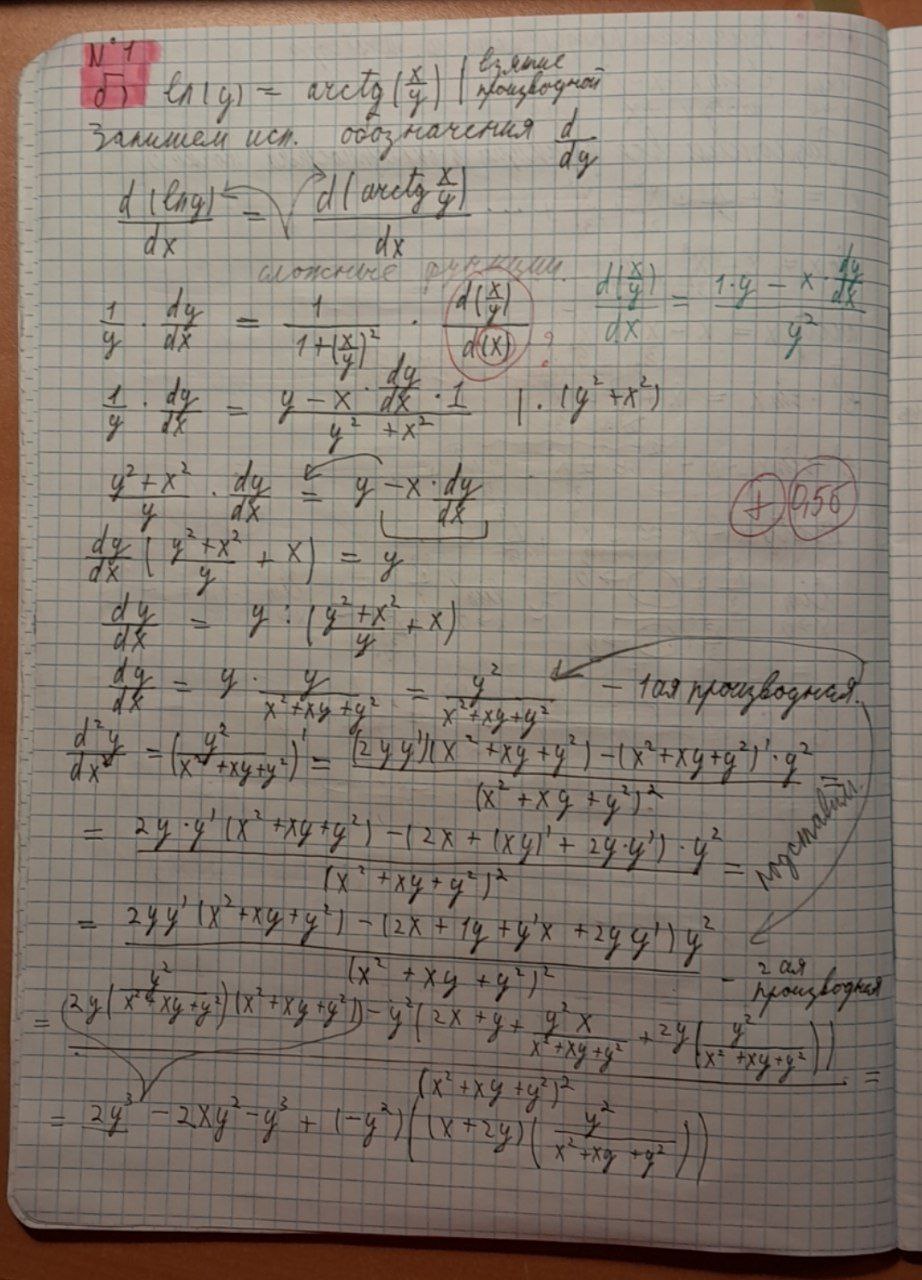 N°1
б) ln(y) = arctg(x/y) | взятие производной
Запишем исп. обозначения d/dy
d(ln y)/dx = d(arctg x/y)/dx
сложные функции
1/y · dy/dx = 1/(1+(x/y)²) · d(x/y)/d(x) ? d(x/y)/dx = (1·y − x·dy/dx)/y²
1/y · dy/dx = (y − x · dy/dx · 1)/(y² + x²) | · (y² + x²)
(y² + x²)/y · dy/dx = y − x · dy/dx
+ 0,5б
dy/dx ((y² + x²)/y + x) = y
dy/dx = y : ((y² + x²)/y + x)
dy/dx = y · y/(x² + xy + y²) = y²/(x² + xy + y²) – 1ая производная.
d²y/dx² = (y²/(x² + xy + y²))' = ((2yy')(x² + xy + y²) − (x² + xy + y²)' · y²)/(x² + xy + y²)² =
= (2y · y'(x² + xy + y²) − (2x + (xy)' + 2y · y') · y²)/(x² + xy + y²)² =
подставим
= (2yy'(x² + xy + y²) − (2x + 1y + y'x + 2yy')y²)/(x² + xy + y²)² – 2ая производная
= ((2y(y²/(x² + xy + y²))(x² + xy + y²)) − y²(2x + y + y²x/(x² + xy + y²) + 2y(y²/(x² + xy + y²))))/(x² + xy + y²)² =
= 2y³ − 2xy² − y³ + (−y²)((x + 2y)(y²/(x² + xy + y²)))